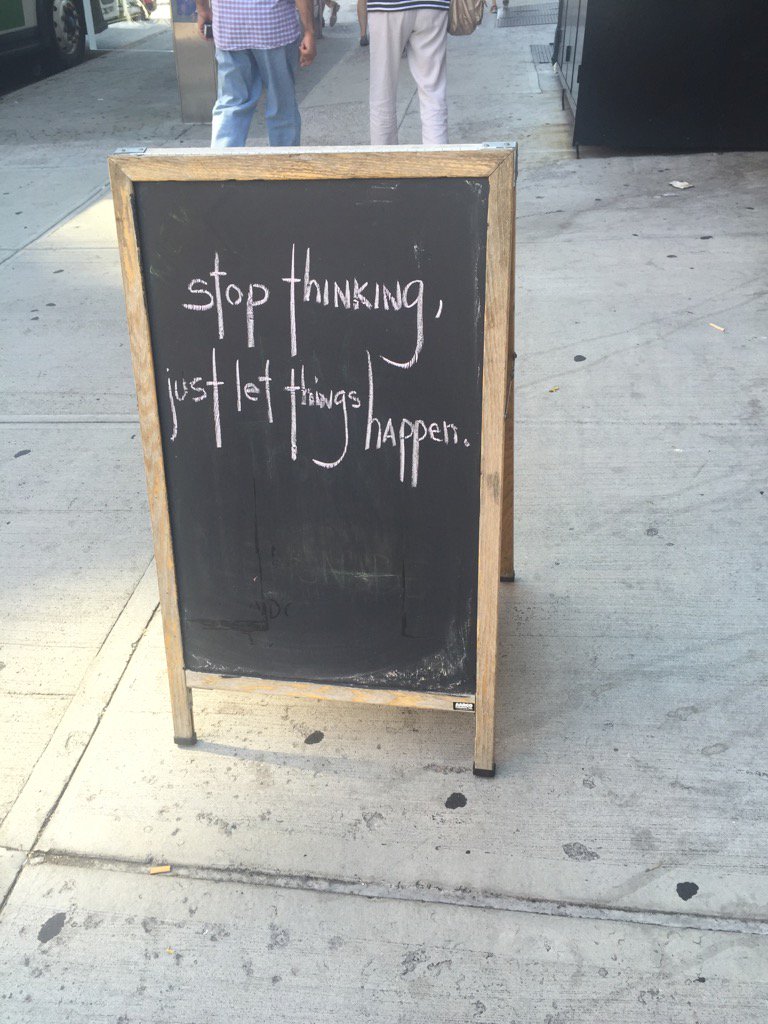 stop thINKING,
just let thiNgs hAppen.